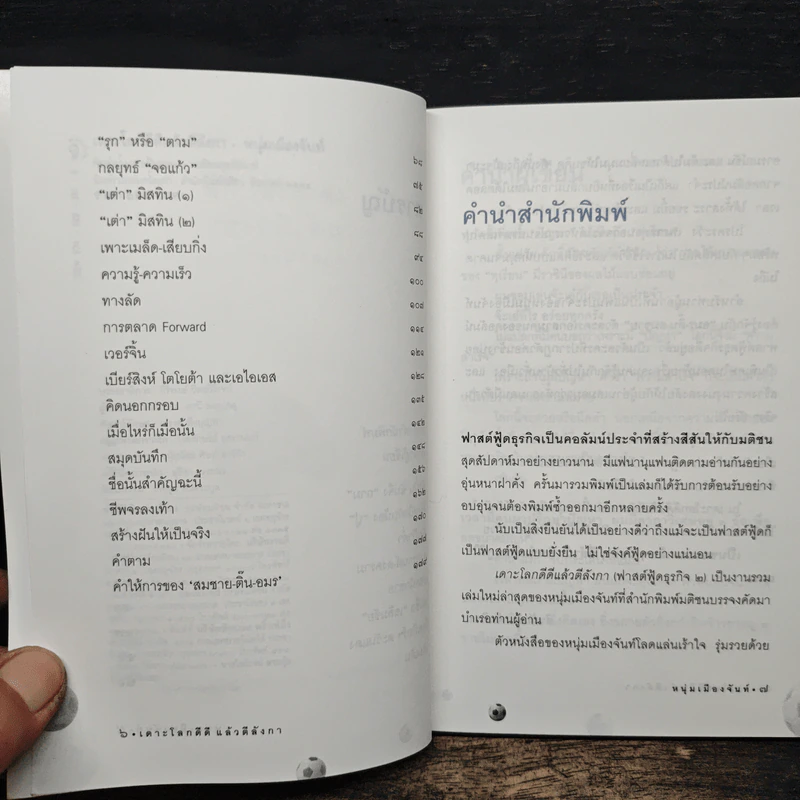 "รุก" หรือ "ตาม" ๖๘
กลยุทธ์ "จอแก้ว" ๗๕
"เต่า" มิสทิน (๑) ๘๒
"เต่า" มิสทิน (๒) ๘๘
เพาะเมล็ด-เสียบกิ่ง ๙๔
ความรู้-ความเร็ว ๑๐๐
ทางลัด ๑๐๘
การตลาด Forward ๑๑๔
เวอร์จิ้น ๑๒๑
เบียร์สิงห์ โตโยต้า และเอไอเอส ๑๒๘
คิดนอกกรอบ ๑๓๕
เมื่อไหร่ก็เมื่อนั้น ๑๔๒
สมุดบันทึก ๑๔๘
ชื่อนั้นสำคัญฉะนี้
ชีพจรลงเท้า
สร้างฝันให้เป็นจริง
คำตาม
คำให้การของ 'สมชาย-ติ๊น-อมร'
๖ • เดาะโลกดีดี แล้วตีลังกา
คำนำสำนักพิมพ์
ฟาสต์ฟู้ดธุรกิจเป็นคอลัมน์ประจำที่สร้างสีสันให้กับมติชน
สุดสัปดาห์มาอย่างยาวนาน มีแฟนานุแฟนติดตามอ่านกันอย่าง
อุ่นหนาฝาคั่ง ครั้นมารวมพิมพ์เป็นเล่มก็ได้รับการต้อนรับอย่าง
อบอุ่นจนต้องพิมพ์ซ้ำออกมาอีกหลายครั้ง
นับเป็นสิ่งยืนยันได้เป็นอย่างดีว่าถึงแม้จะเป็นฟาสต์ฟู้ดก็
เป็นฟาสต์ฟู้ดแบบยั่งยืน ไม่ใช่จังค์ฟู้ดอย่างแน่นอน
เดาะโลกดีดีแล้วตีลังกา (ฟาสต์ฟู้ดธุรกิจ ๒) เป็นงานรวม
เล่มใหม่ล่าสุดของหนุ่มเมืองจันท์ที่สำนักพิมพ์มติชนบรรจงคัดมา
บำเรอท่านผู้อ่าน
ตัวหนังสือของหนุ่มเมืองจันท์โลดแล่นเร้าใจ รุ่มรวยด้วย
หนุ่มเมืองจันท์ • ๗